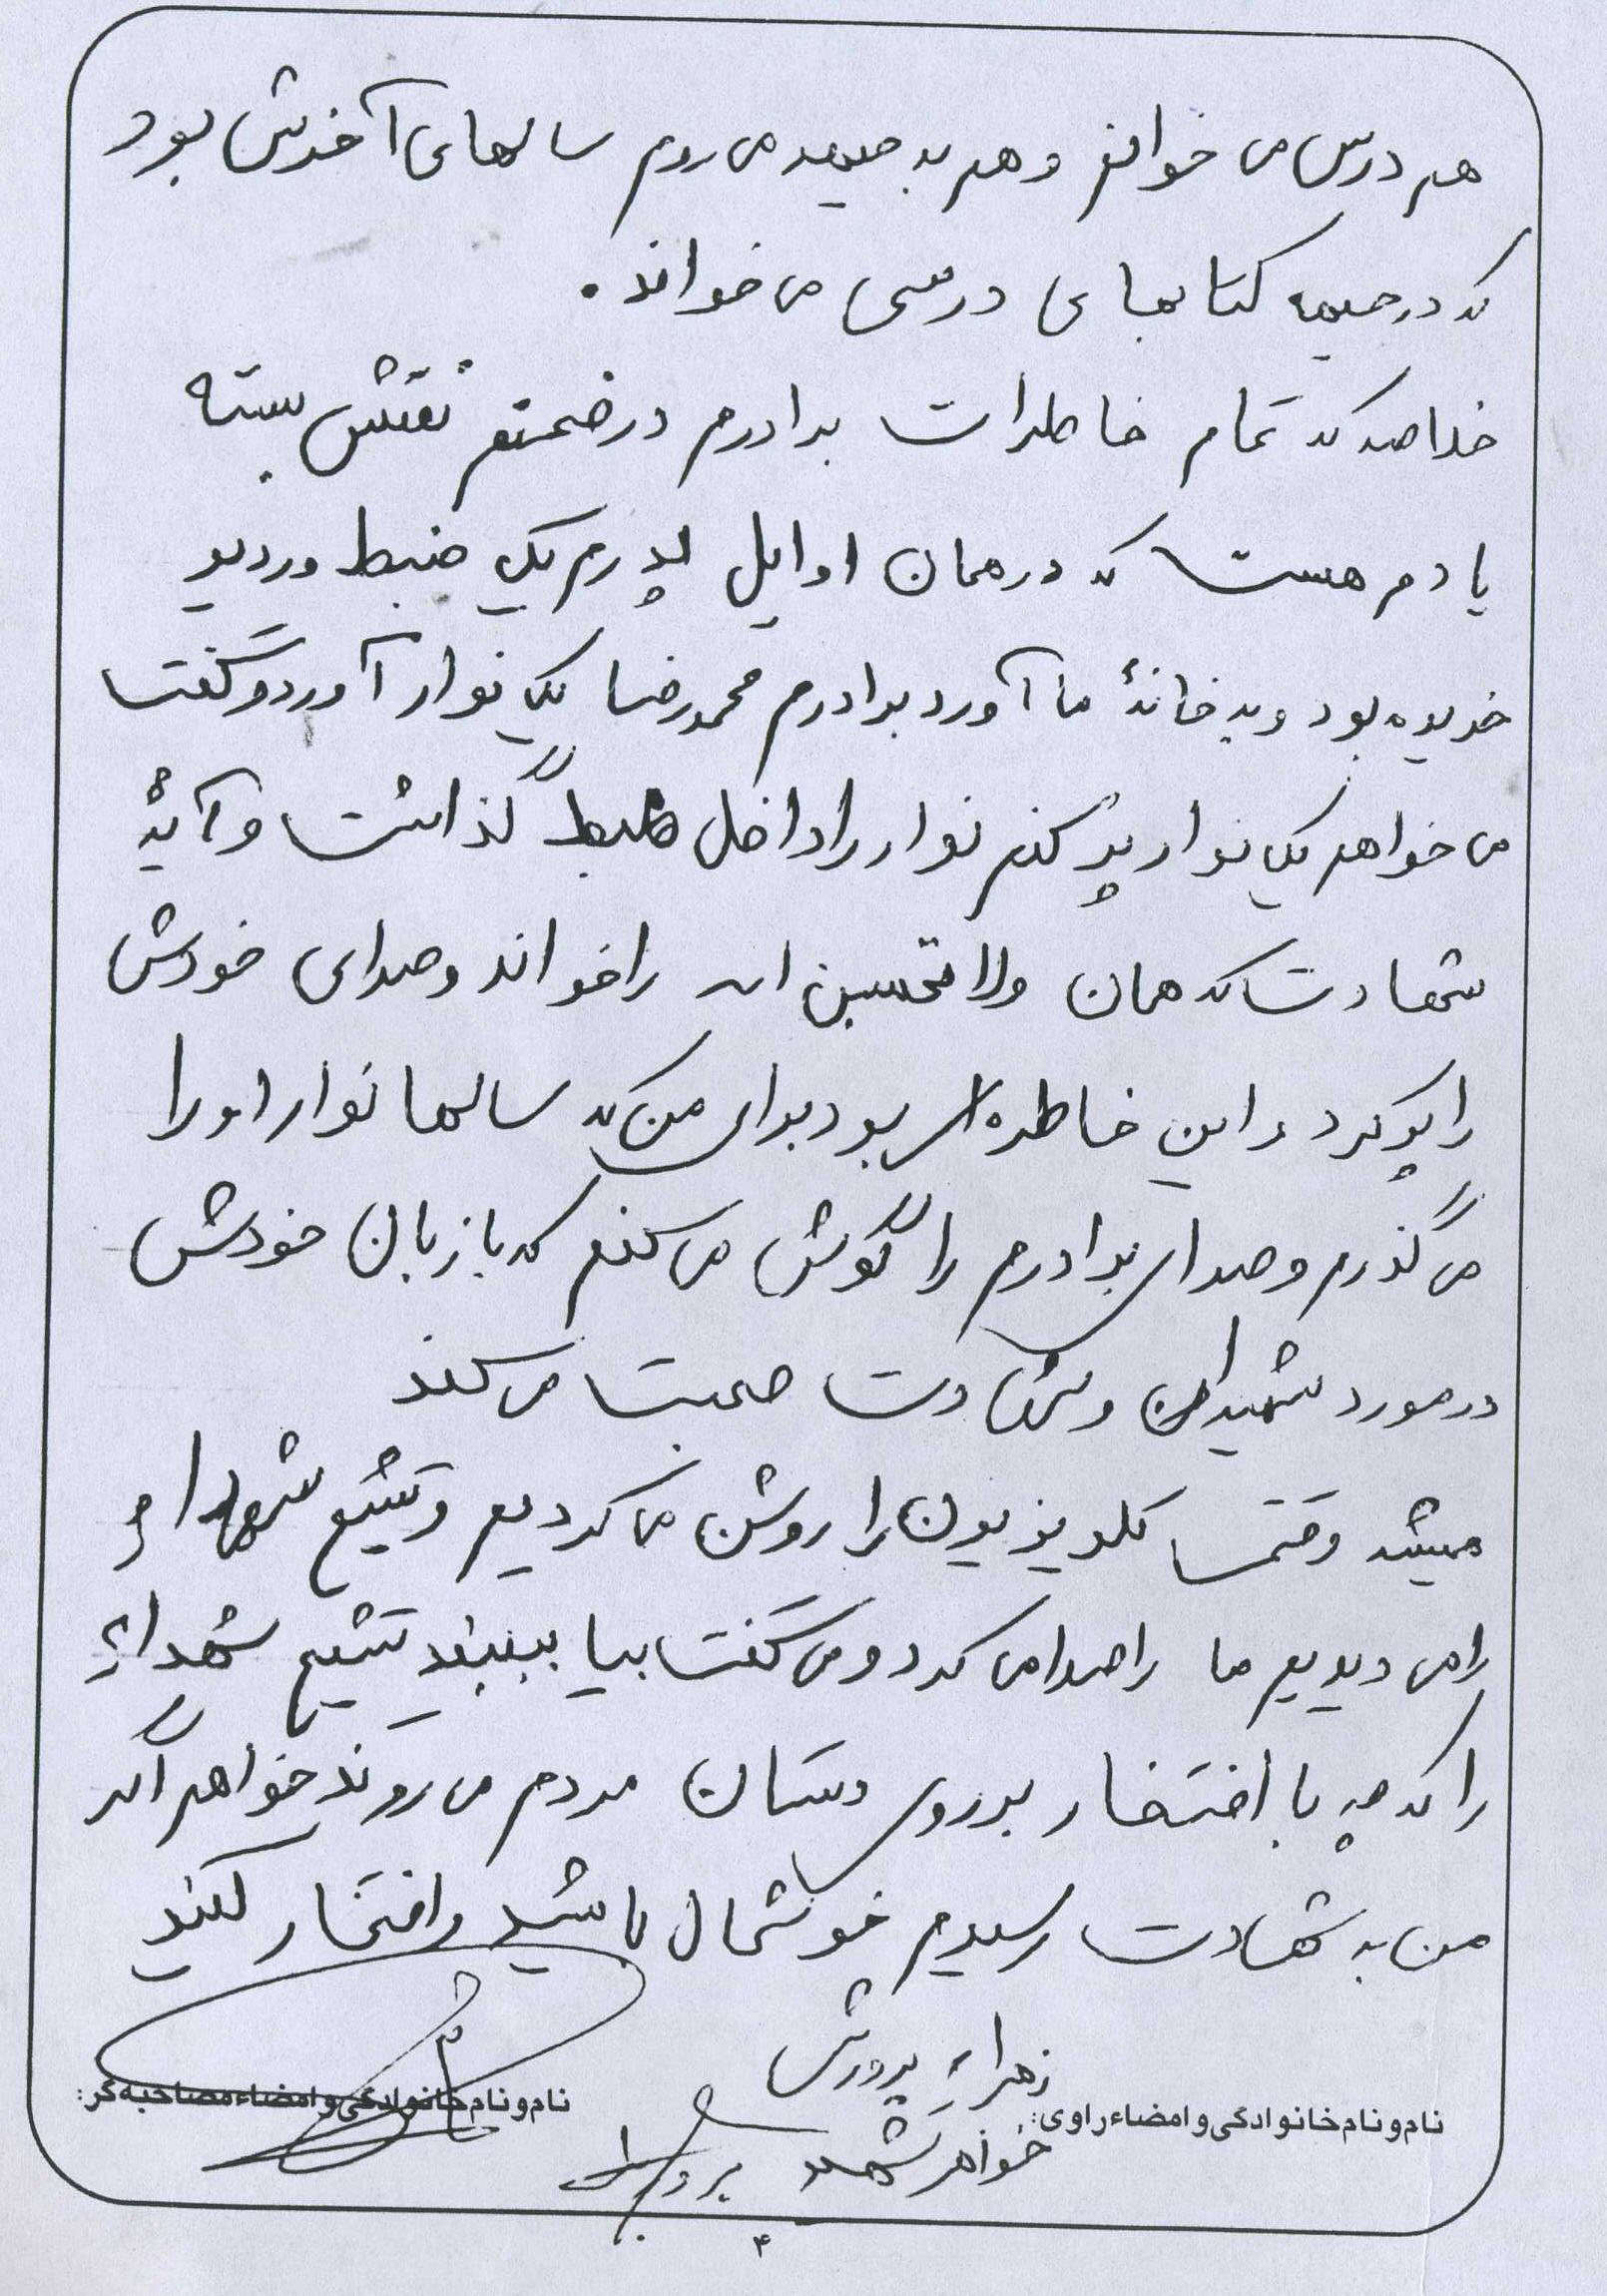 هم درس می خوانم و هم به جبهه می روم سالهای آخرش بود
که در جبهه کتابهای درسی می خواند.
خلاصه که تمام خاطرات برادرم در ضمنم نقش بسته
یادم هست که در همان اوایل پدرم یک ضبط و ردیو
خریده بود و به خانهٔ ما آورد برادرم محمدرضا یک نوار آورد و گفت
می خواهم یک نوار پر کنم نوار را داخل ضبط گذاشت و آیهٔ
شهادت که همان ولاتحسبن ا... را خواند و صدای خودش
را پر کرد و این خاطره ای بود برای من که سالها نوار او را
می گذرم و صدای برادرم را گوش می کنم که با زبان خودش
در مورد شهیدان و شهادت صحبت می کند
میشه وقتی تلویزیون را روشن می کردیم و تشیع شهدا
را می دیدیم ما را صدا می کرد و می گفت بیا ببینید تشیع شهداء
را که چه با افتخار بر روی دستان مردم می روند خواهر اگر
من به شهادت رسیدم خوشحال باشید و افتخار کنید
زهرا پرورش
نام و نام خانوادگی و امضاء راوی: خواهر شهید
نام و نام خانوادگی و امضاء مصاحبه گر:
۴